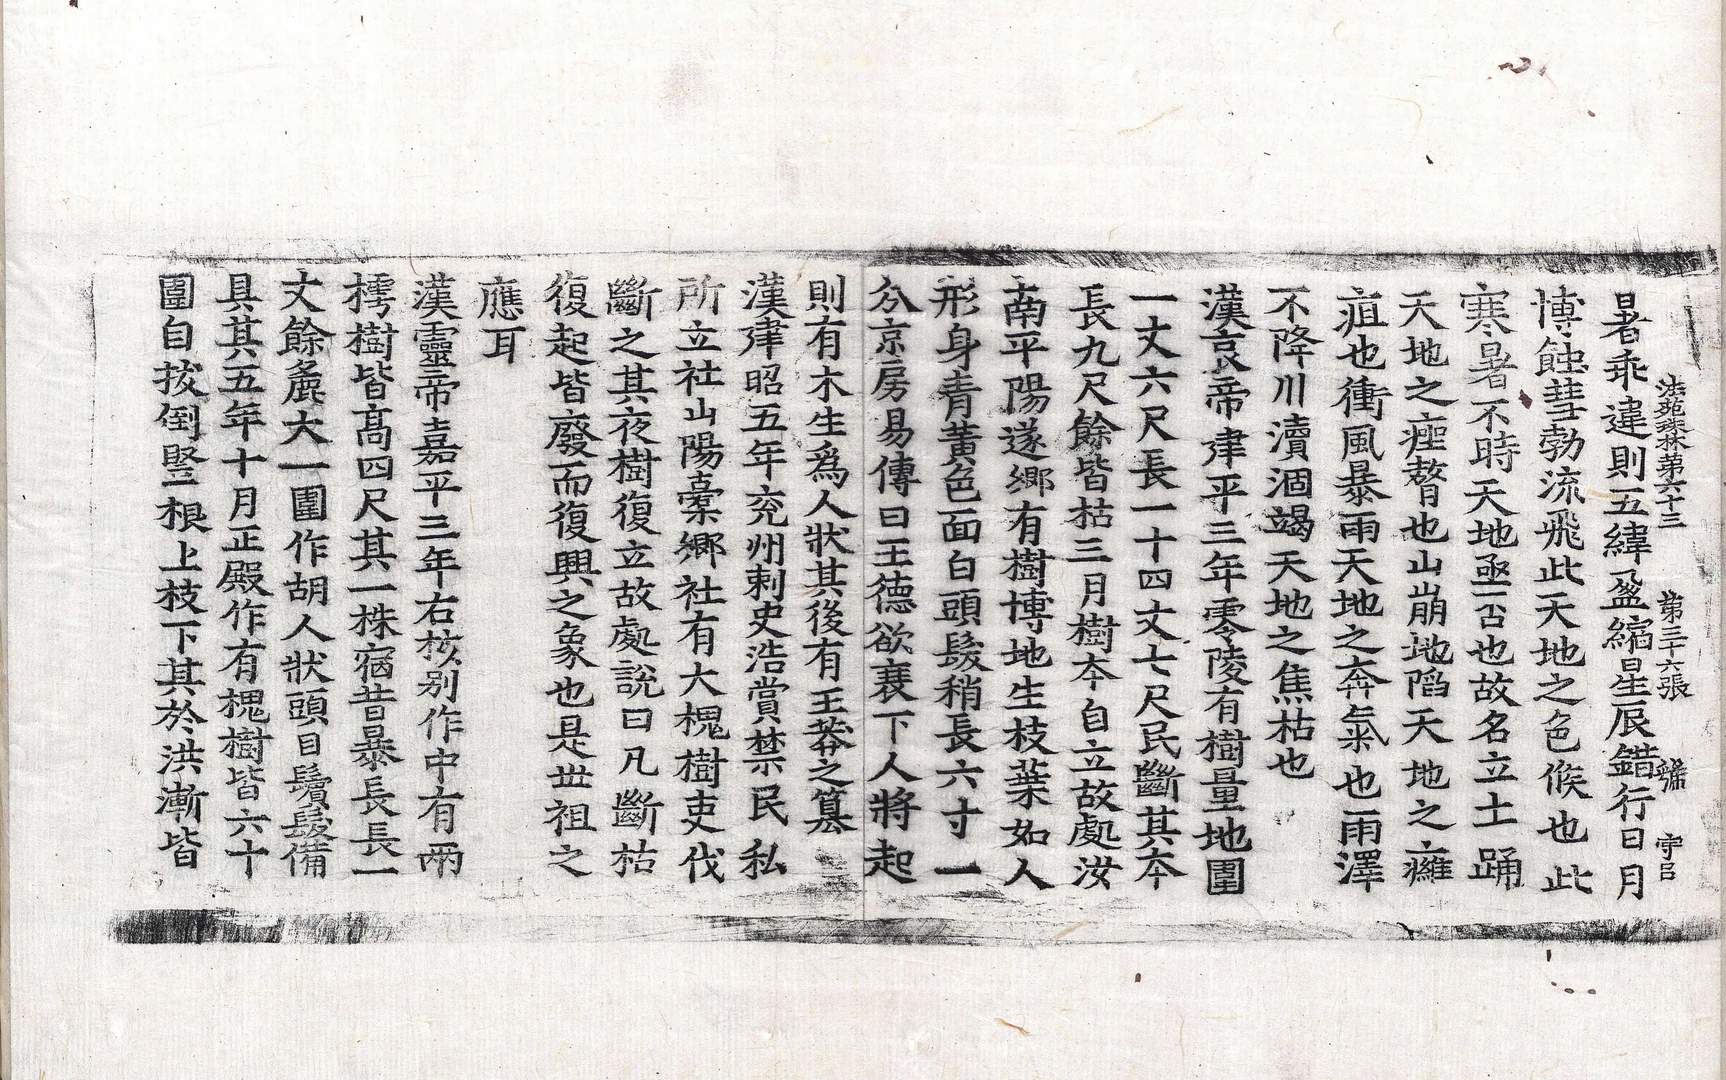 法苑珠林第六十三　第三十六張　號　字号
暑乖違則五緯盈縮星辰錯行日月
博蝕彗勃流飛此天地之色候也此
寒暑不時天地亟否也故名立土踊
天地之痤瞀也山崩地陷天地之癰
疽也衝風暴雨天地之奔氣也雨澤
不降川瀆涸竭天地之焦枯也
漢哀帝建平三年零陵有樹量地圍
一丈六尺長一十四丈七尺民斷其本
長九尺餘皆枯三月樹本自立故處汝
南平陽遂鄉有樹博地生枝葉如人
形身青黃色面白頭髮稍長六寸一
分京房易傳曰王德欲衰下人將起
則有木生為人狀其後有王莽之篡
漢建昭五年兖州刺史浩賞禁民私
所立社山陽橐鄉社有大槐樹吏伐
斷之其夜樹復立故處說曰凡斷枯
復起皆廢而復興之象也是世祖之
應耳
漢靈帝嘉平三年右校別作中有兩
樗樹皆高四尺其一株宿昔暴長長一
丈餘麁大一圍作胡人狀頭目鬢髮備
具其五年十月正殿作有槐樹皆六十
圍自拔倒竪根上枝下其於洪漸皆